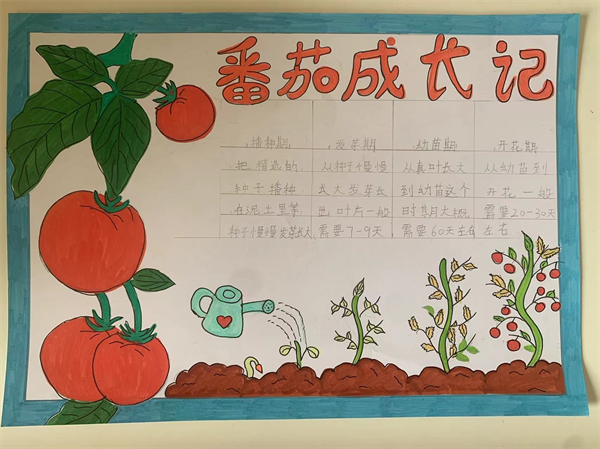 番茄成长记
播种期
把精选的
种子播种
在泥土里等
种子慢慢发芽长大
发芽期
从种子慢慢
长大发芽长
出叶片一般
需要7-9天
幼苗期
从真叶长大
到幼苗这个
时期大概
需要60天左右
开花期
从幼苗到
开花一般
需要20-30天
左右